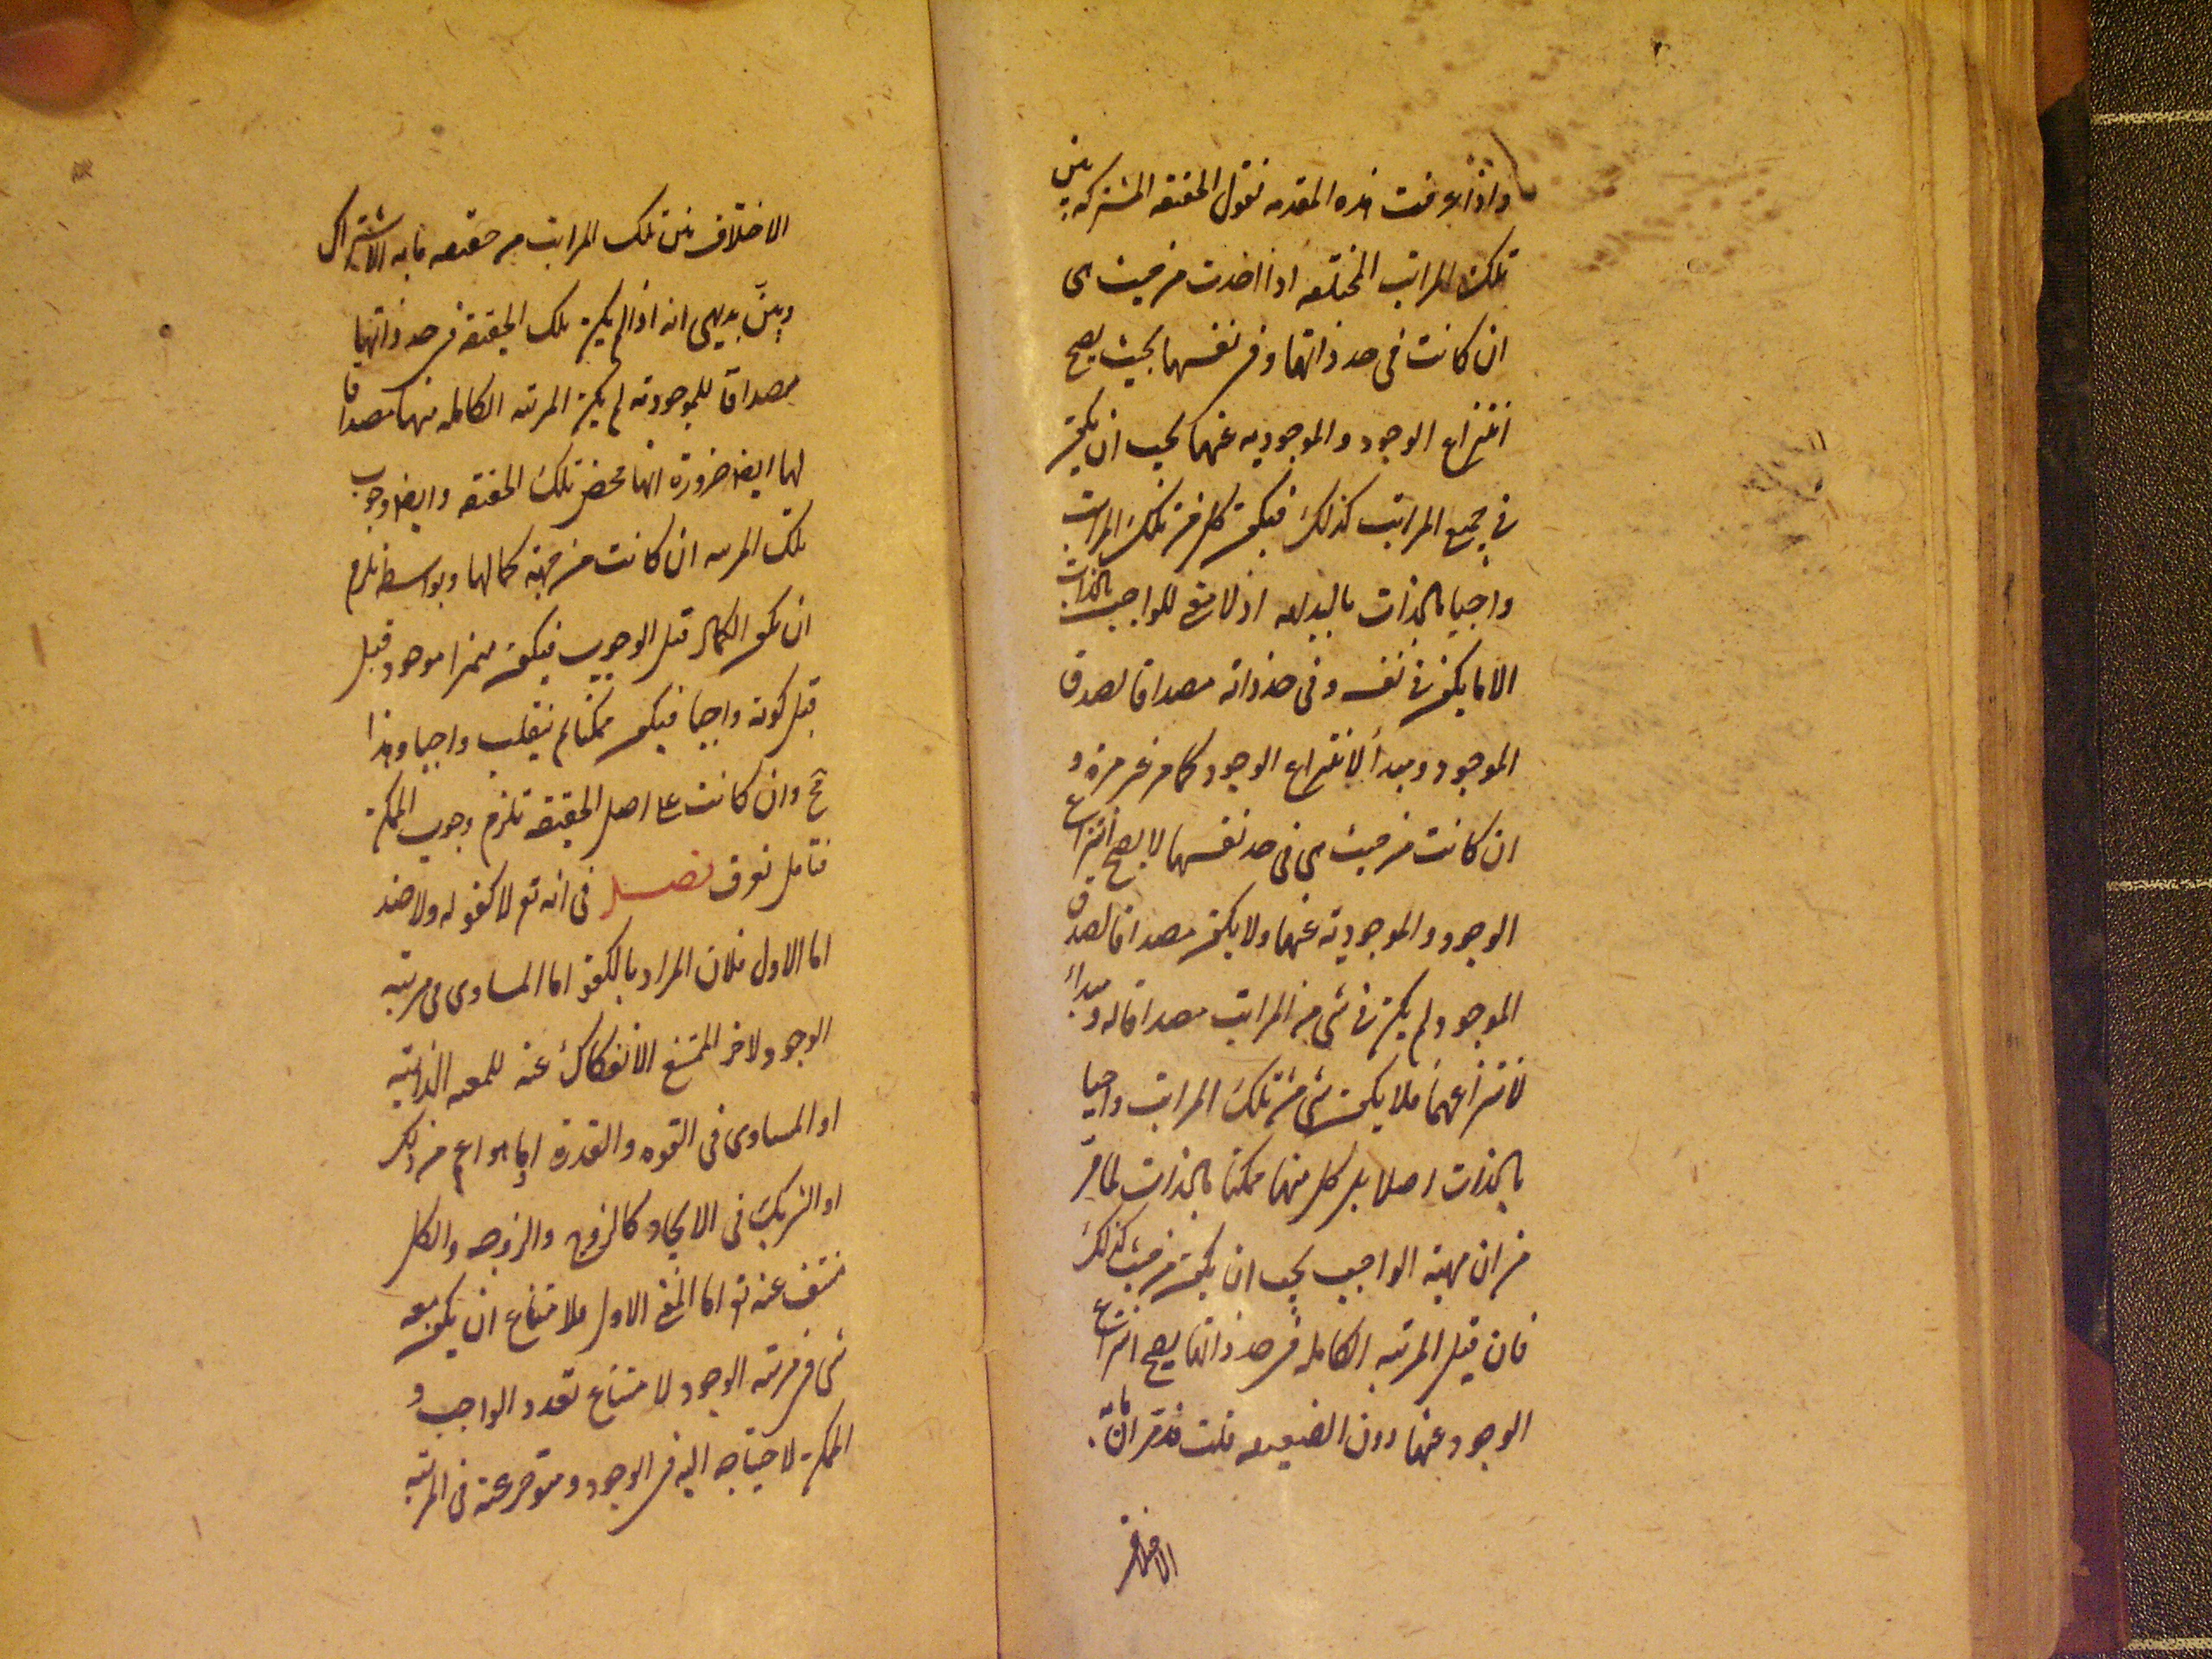 واذا عرفت هذه المقدمه نقول الحقيقه المشتركه بين
تلك المراتب المختلفه اذا اخذت من حيث هى
ان كانت فى حد ذاتها و فى نفسها بحيث يصح
انتزاع الوجود و الموجوديه عنها يجب ان يكون
فى جميع المراتب كذلك فيكون كل من تلك المراتب
واجبا بالذات بالبديهه اذ لا معنى للواجب بالذات
الا ما يكون فى نفسه و فى حد ذاته مصداقا لصدق
الموجود و مبدأ لانتزاع الوجود كما مر غير مرة و
ان كانت من حيث هى فى حد نفسها لا يصح انتزاع
الوجود و الموجودية عنها ولا يكون مصداقا لصدق
الموجود و لم يكن فى شى من المراتب مصداقا له و مبدأ
لانتزاعهما فلا يكون شى من تلك المراتب واجبا
بالذات اصلا بل كل منها ممكنا بالذات لما مر
من ان مهية الواجب يجب ان يكون من حيث كذلك
فان قيل المرتبه الكامله فى حد ذاتها يصح انتزاع
الوجود عنها دون الضعيفه قلت قد مر ان ما به
الاختلاف
الاختلاف بين تلك المراتب من حقيقه ما به الاشتراك
وبيّن بديهى انه اذا لم يكن تلك الحقيقة فى حد ذاتها
مصداقا للموجودية لم يكن المرتبه الكامله منها مصداقا
لها ايضا ضرورة انها محض تلك الحقيقه وايضا وجوب
تلك المرتبه ان كانت من جهة كمالها و بواسطه يلزم
ان يكون الكمال قبل الوجوب فيكون موجود قبل
قبل كونه واجبا فيكون ممكنا ثم ينقلب واجبا وهذا
مح وان كانت على اصل الحقيقه يلزم وجوب الممكن
فتامل تعرف فصل فى انه تع لا كفو له ولا ضد
اما الاول فلان المراد بالكفو اما المساوى فى مرتبه
الوجود لاخر الممتنع الانفكاك عنه للمعيه الذاتيه
او المساوى فى القوه و القدرة او ما هو اعم من ذلك
او الشريك فى الايجاد كالزوج والزوجه والكل
منتف عنه تع اما المعنى الاول فلامتناع ان يكون معه
شى فى مرتبه الوجود لامتناع تعدد الواجب و
الممكن لاحتياجه اليه فى الوجود و متوخر عنه فى المرتبه